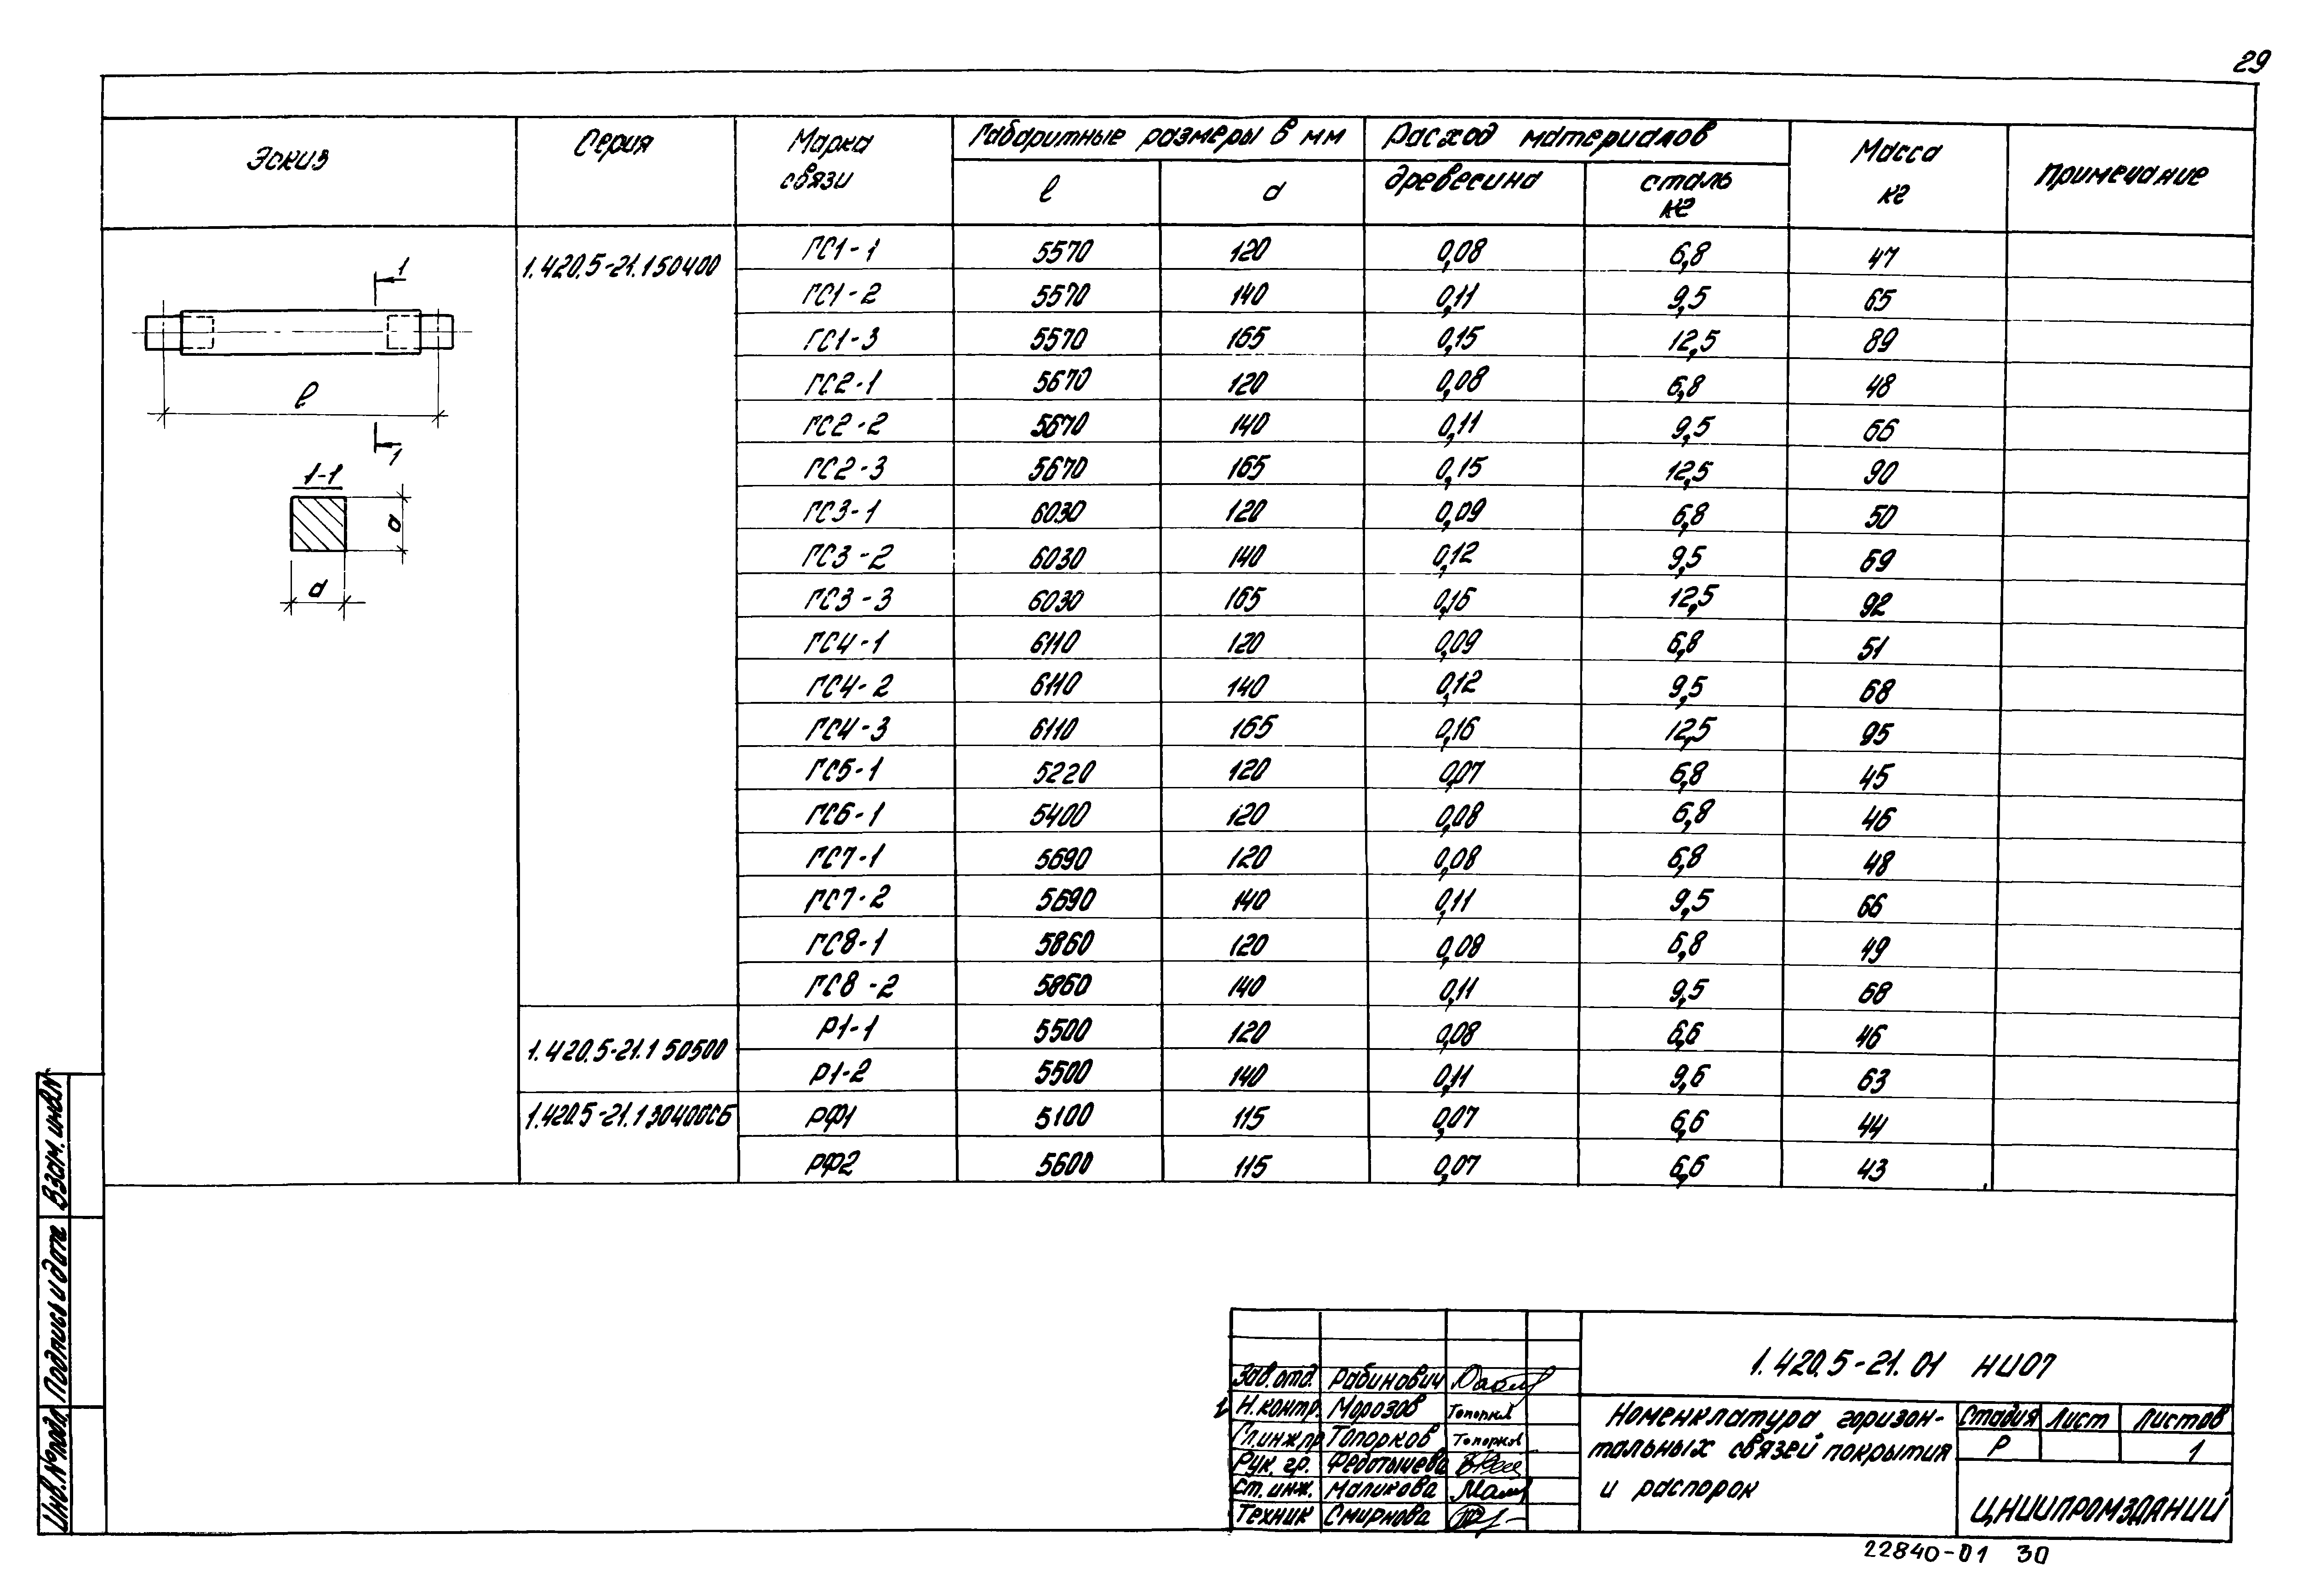 29
Эскиз Серия Марка связи Габаритные размеры в мм Расход материалов Масса кг Примечание
l d древесина сталь кг
1.420.5-21.1 50400 ГС1-1 5570 120 0,08 6,8 47
ГС1-2 5570 140 0,11 9,5 65
ГС1-3 5570 165 0,15 12,5 89
ГС2-1 5670 120 0,08 6,8 48
ГС2-2 5670 140 0,11 9,5 66
ГС2-3 5670 165 0,15 12,5 90
ГС3-1 6030 120 0,09 6,8 50
ГС3-2 6030 140 0,12 9,5 69
ГС3-3 6030 165 0,16 12,5 92
ГС4-1 6110 120 0,09 6,8 51
ГС4-2 6110 140 0,12 9,5 68
ГС4-3 6110 165 0,16 12,5 95
ГС5-1 5220 120 0,07 6,8 45
ГС6-1 5400 120 0,08 6,8 46
ГС7-1 5690 120 0,08 6,8 48
ГС7-2 5690 140 0,11 9,5 66
ГС8-1 5860 120 0,08 6,8 49
ГС8-2 5860 140 0,11 9,5 68
1.420.5-21.1 50500 Р1-1 5500 120 0,08 6,6 46
Р1-2 5500 140 0,11 9,6 63
1.420.5-21.1 30400СБ РФ1 5100 115 0,07 6,6 44
РФ2 5600 115 0,07 6,6 43
1
l
1
1-1
d
d
Взам. инв.N
Подпись и дата
Инв.№подл.
Зав.отд. Рабинович
Н.контр. Морозов Топорков
Гл.инж.пр Топорков Топорков
Рук. гр. Федотычева
Ст. инж. Маликова
Техник Смирнова
1.420.5-21.01 НИ07
Номенклатура горизон-
тальных связей покрытия
и распорок
Стадия Лист Листов
Р 1
ЦНИИПРОМЗДАНИЙ
22840-01 30